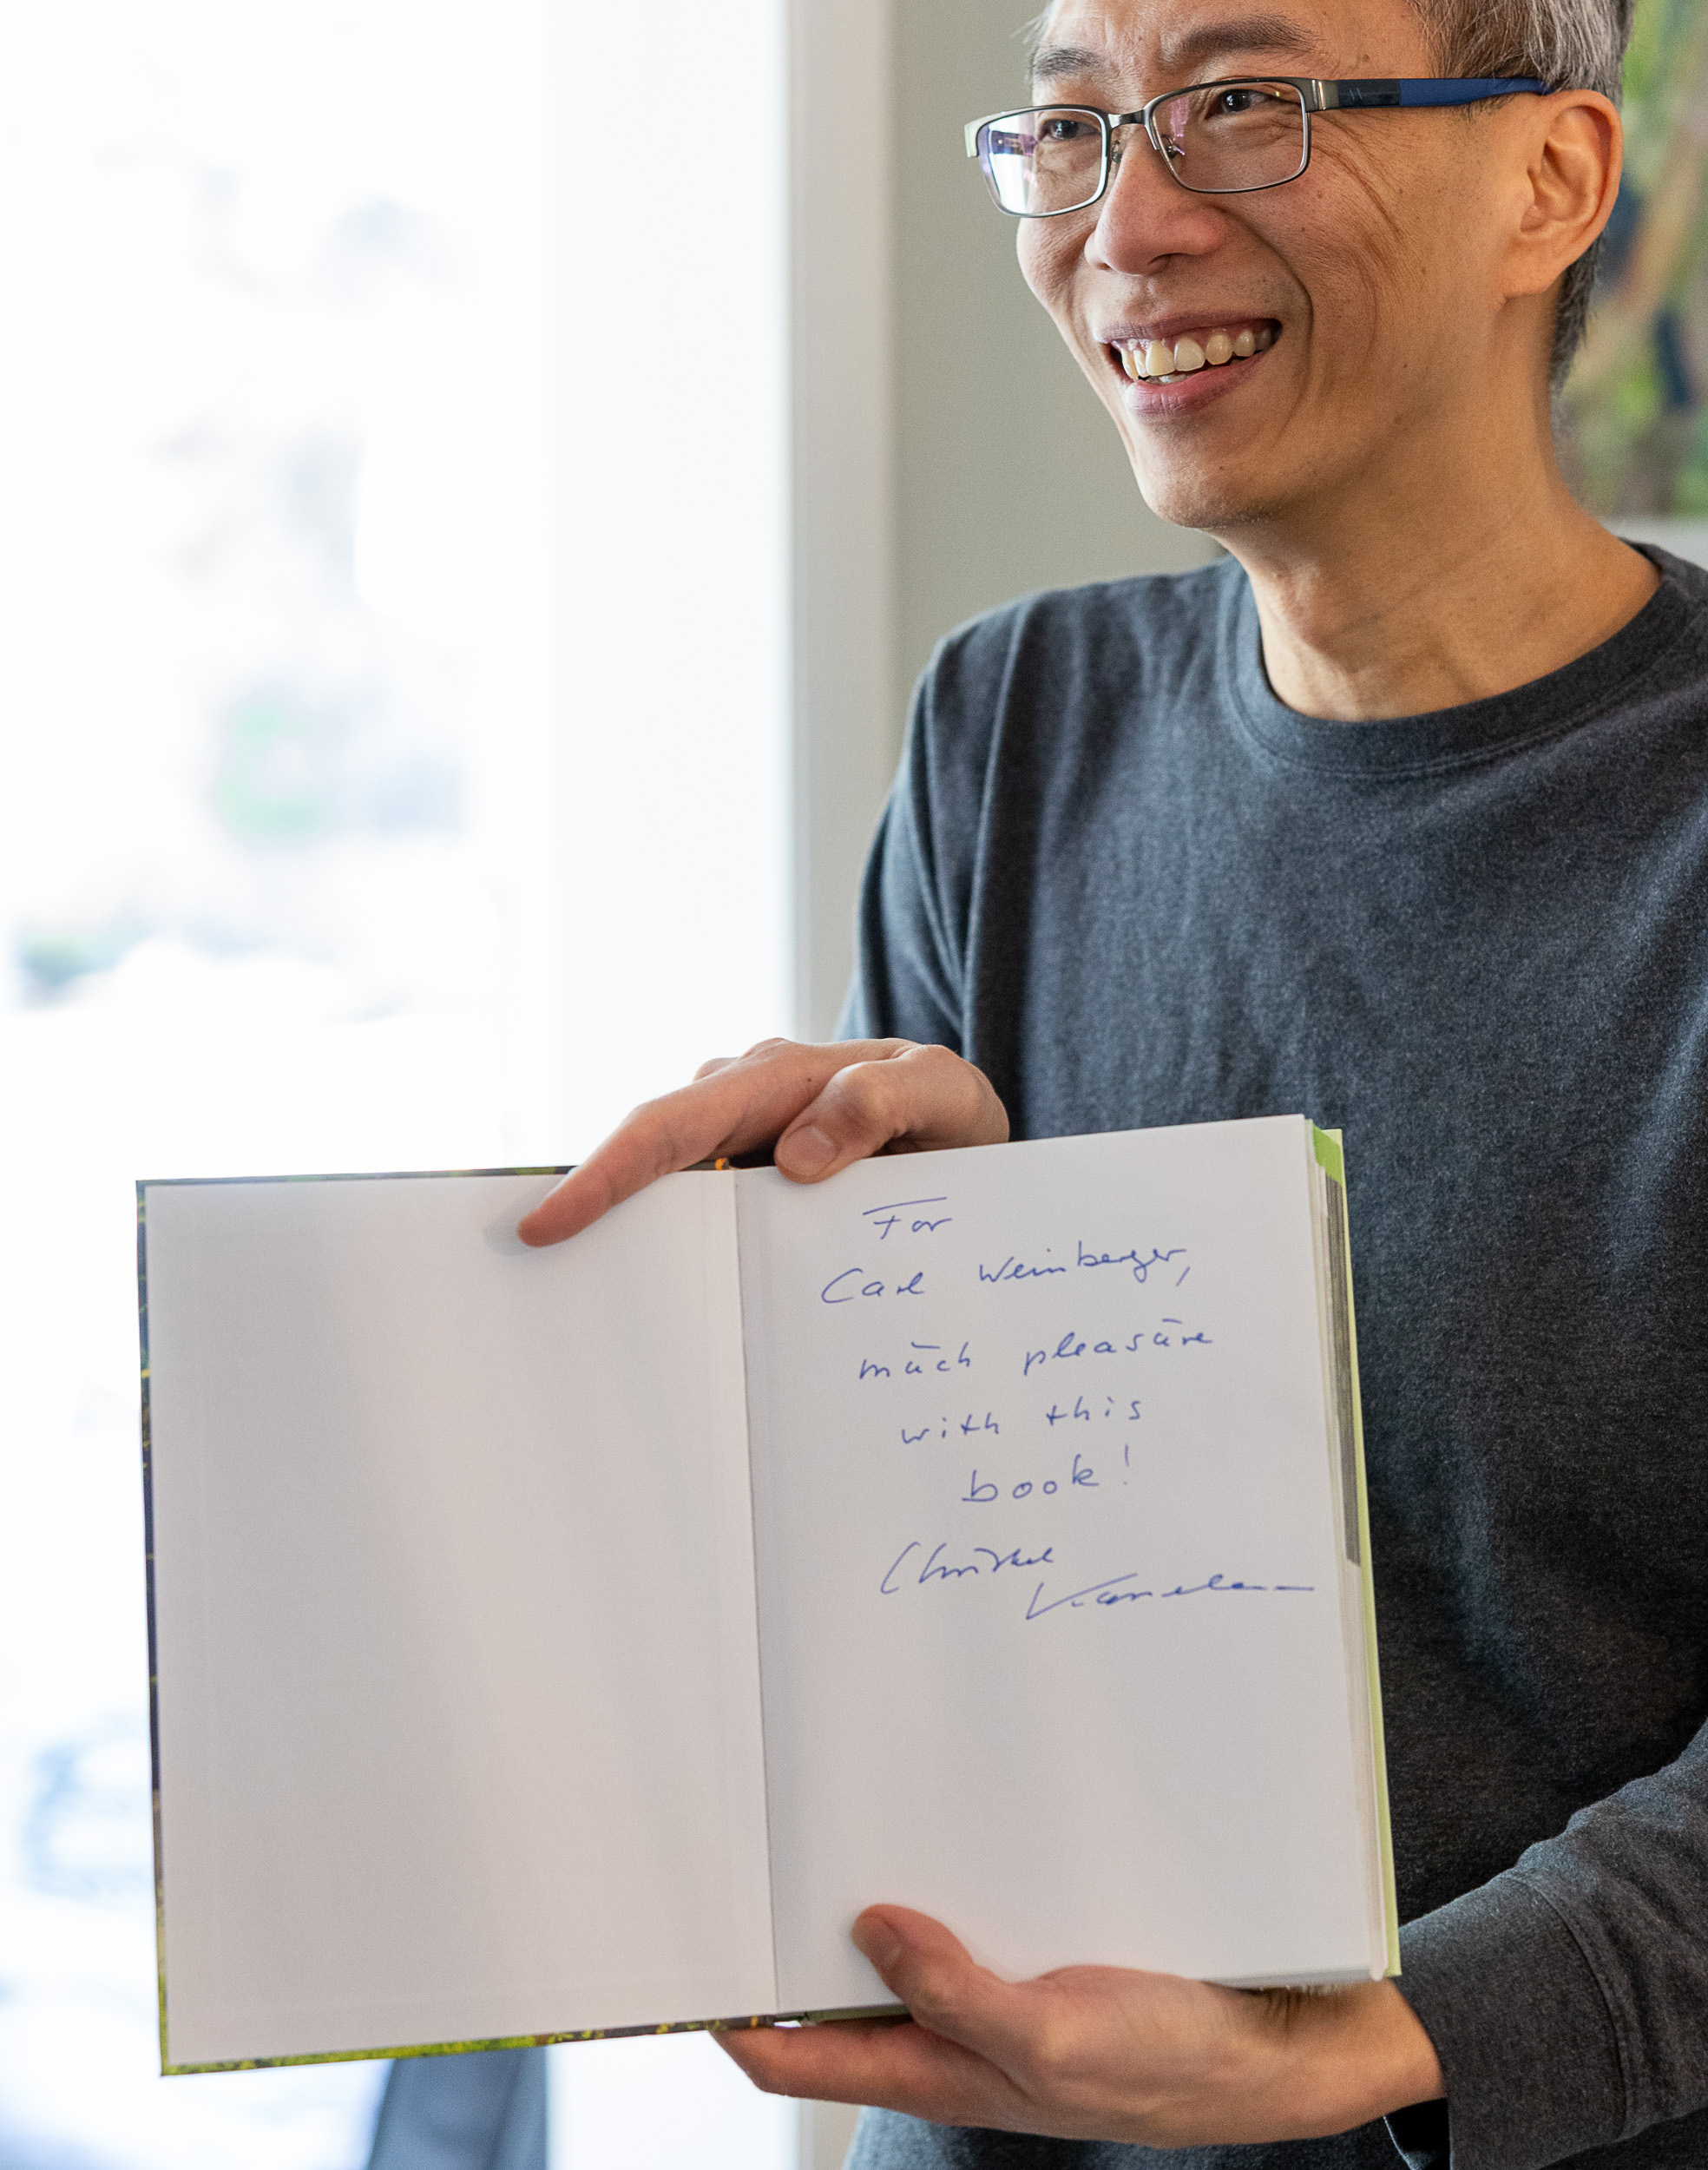 For
Carl Weinberger,
much pleasure
with this
book!